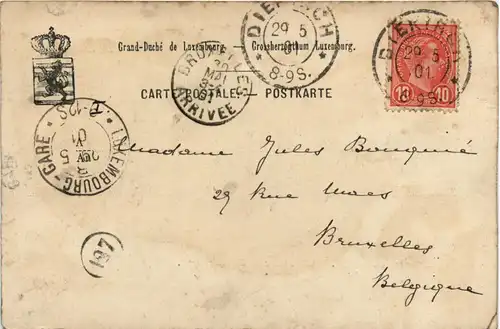 DIEKIRCH
29 5
01
8-9S.
DIEKIRCH
29 5
01
8-9S.
10 10
Grand-Duché de Luxembourg. Grossherzogthum Luxemburg.
BRUXELLES
MAI
ARRIVÉE
CARTE POSTALE. — POSTKARTE
LUXEMBOURG-GARE
01
5
Madame Jules
29 Rue
Bruxelles
Belgique